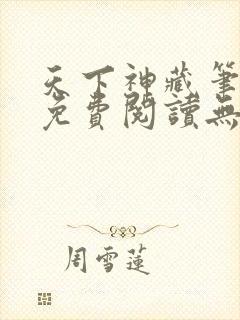 天下神藏筆
免費閱讀無
周雪蓮